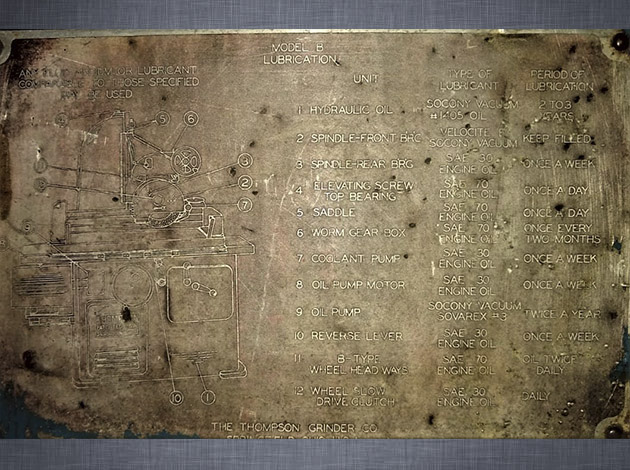 MODEL B
LUBRICATION
OR LUBRICANT
THOSE SPECIFIED
BE USED
UNIT
TYPE OF
LUBRICANT
PERIOD OF
LUBRICATION
1 HYDRAULIC OIL
SOCONY VACUUM
OIL
2 TO 3
YEARS
2 SPINDLE-FRONT BRG
VELOCITE
SOCONY VACUUM
KEEP FILLED
3 SPINDLE-REAR BRG
SAE 30
ENGINE OIL
ONCE A WEEK
4 ELEVATING SCREW
TOP BEARING
SAE 70
ENGINE OIL
ONCE A DAY
5 SADDLE
SAE 70
ENGINE OIL
ONCE A DAY
6 WORM GEAR BOX
SAE 70
ENGINE OIL
ONCE EVERY
TWO MONTHS
7 COOLANT PUMP
SAE 30
ENGINE OIL
ONCE A WEEK
8 OIL PUMP MOTOR
SAE 30
ENGINE OIL
ONCE A WEEK
9 OIL PUMP
SOCONY VACUUM
SOVAREX #3
TWICE A YEAR
10 REVERSE LEVER
SAE 30
ENGINE OIL
ONCE A WEEK
11 B-TYPE
WHEEL HEAD WAYS
SAE 70
ENGINE OIL
OIL TWICE
DAILY
12 WHEEL SLOW
DRIVE CLUTCH
SAE 30
ENGINE OIL
DAILY
5
6
3
2
7
10
1
THE THOMPSON GRINDER CO.